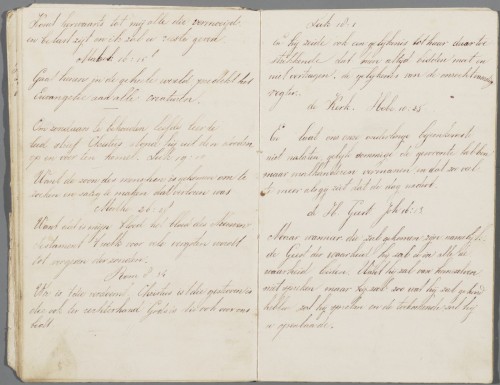 Komt herwaarts tot mij alle die vermoeid
en belast zijt en ik zal u ruste geven
Gaat henen in de geheele wereld, predikt het
Evangelie aan alle creaturen.
Luk 19:10
Want de zoon des menschen is gekomen om te
zoeken en zalig te maken dat verloren was
Matth. 26:28
Want dat is mijn bloed het bloed des Nieuwen
Testament, welk voor vele vergoten wordt
tot vergeving der zonden.
Rom 8:34
Wie is die verdoemt? Christus is die gestorven is
die ook ter rechterhand Gods is die ook voor ons
bidt
Luk 18:1
En hij zeide ook een gelijkenis tot haar daartoe
strekkende dat men altijd bidden moet en
niet vertragen. de gelijkenis van de onrechtvaardige
regter.
de Kerk. Hebr 10:25
En laat ons onze onderlinge bijeenkomst
niet nalaten, gelijk sommige de gewoonte hebben
maar malkanderen vermanen en dat zo veel
te meer als gij ziet dat de dag nadert.
de H. Geest Joh 16:13
Maar wanneer die zal gekomen zijn namelijk
de Geest der waarheid hij zal u in alle de
waarheid leiden. Want hij zal van hemzelven
niet spreken maar hij zal zo wat hij zal gehoord
hebben zal hij spreken en de toekomende zal hij
u openbaren.